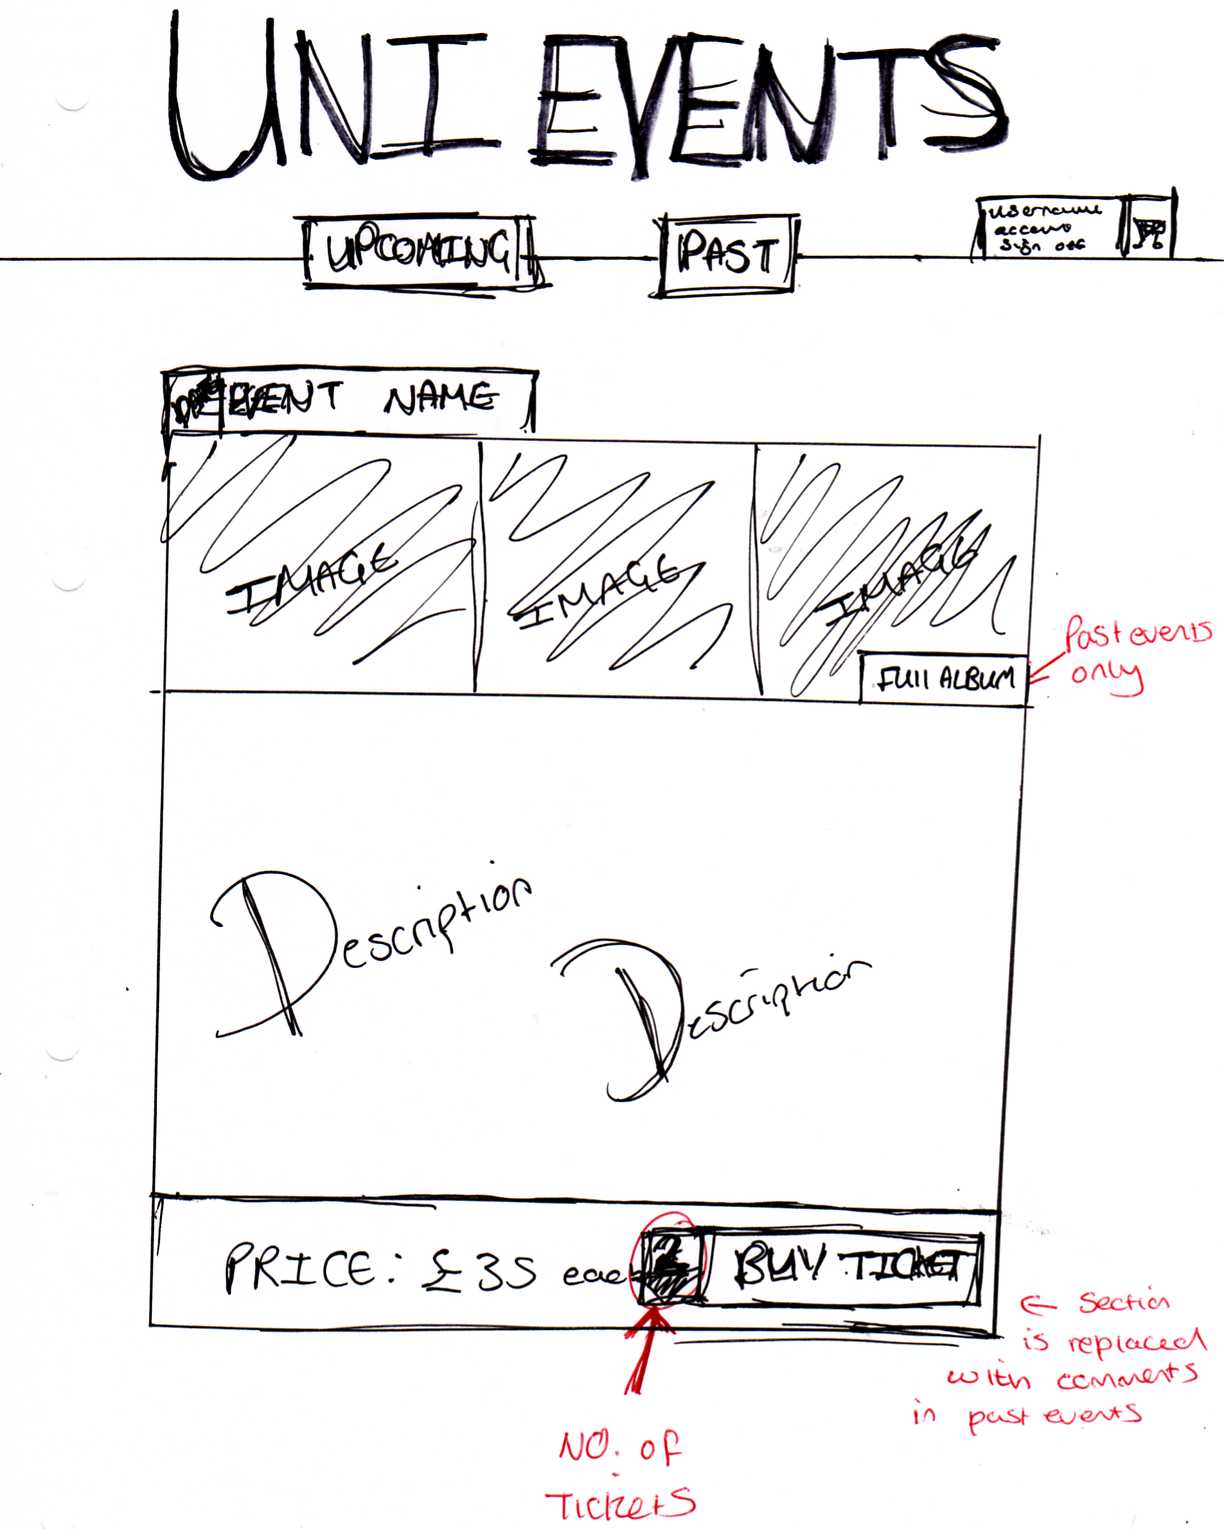 UNI EVENTS
UPCOMING
PAST
username
account
sign out
DATE
EVENT NAME
IMAGE
IMAGE
IMAGE
FUll ALBUM
Past events
only
Description
Description
PRICE: £35 each
2
BUY TICKET
← Section
is replaced
with comments
in past events
NO. of
TickeTS